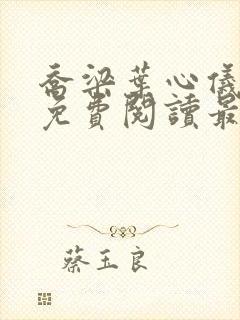 喬梁葉心儀
免費閱讀最
蔡玉良